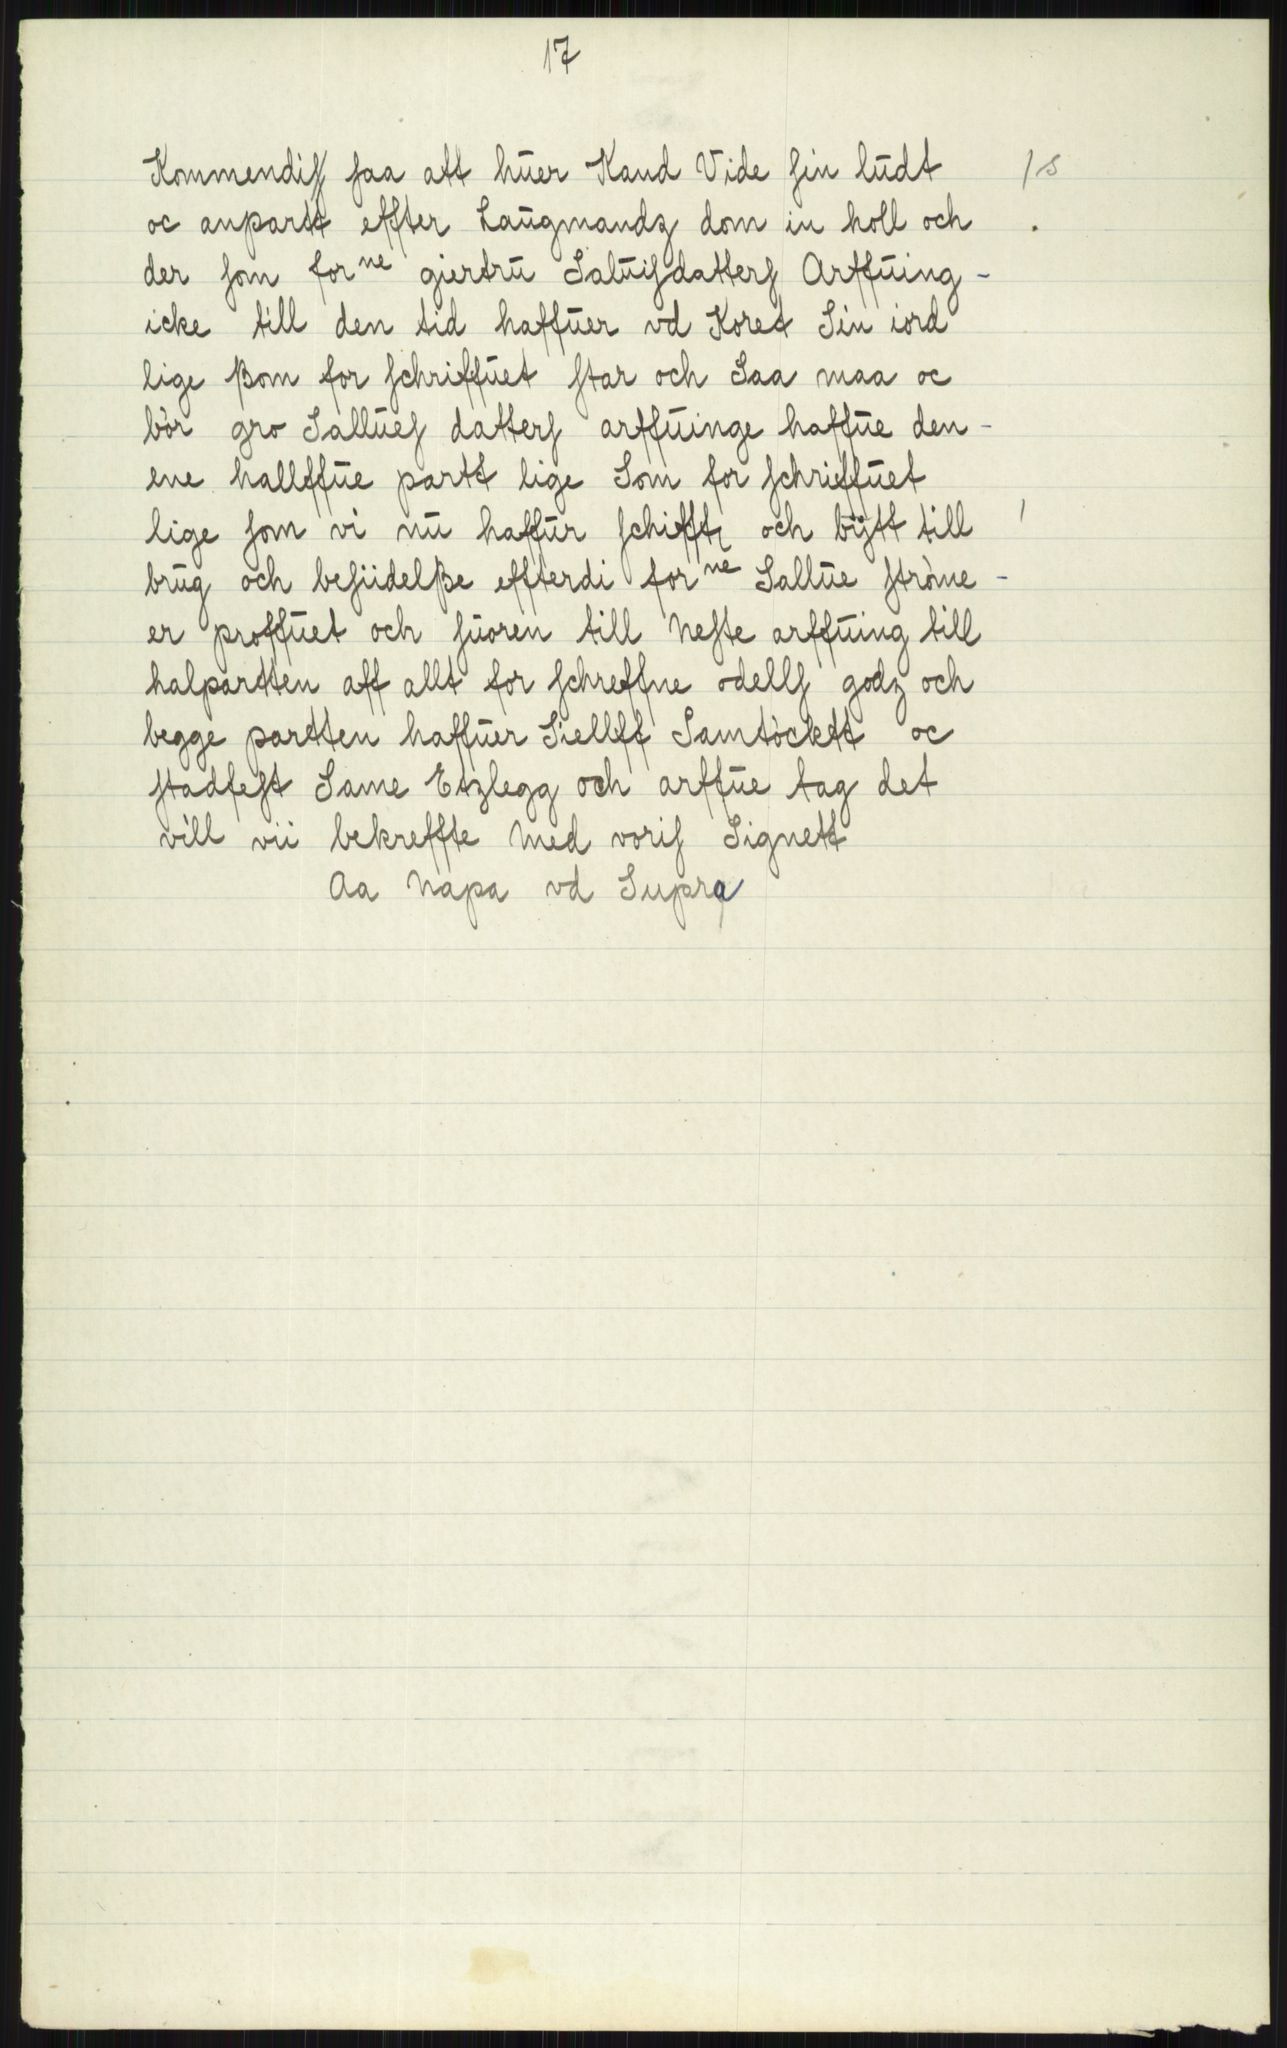 17
Kommendiſ ſaa att hūer Kand Vide ſin lūdt /s
oc anpartt effter Laūgmandz dom in holl och .
der ſom for ne giertrū Salūiſdatterſ Arffūing -
icke till den tid haffūer vd Koret Sin iord
lige ßom for ſchriffūet ſtar och Saa maa oc
bòr gro Sallūeſ datterſ arffūinge haffūe den -
ene hallffūe partt lige Som for ſchrieffūet
lige ſom vi nū haffūr ſchifft och bÿtt till /
brūg och beſiidelße effterdi for ne Sallūe ſtròme -
er proffūet och ſūoren till Neſte arffūing till
halpartten aff allt for ſchreffne odellſ godz och
begge partten haffūer Siellff Samtòcktt oc
ſtadfeſt Same Etzlegg och arffūe tag det
vill vii bekreffte Med voriſ Signett
Aa Napa vd Supra